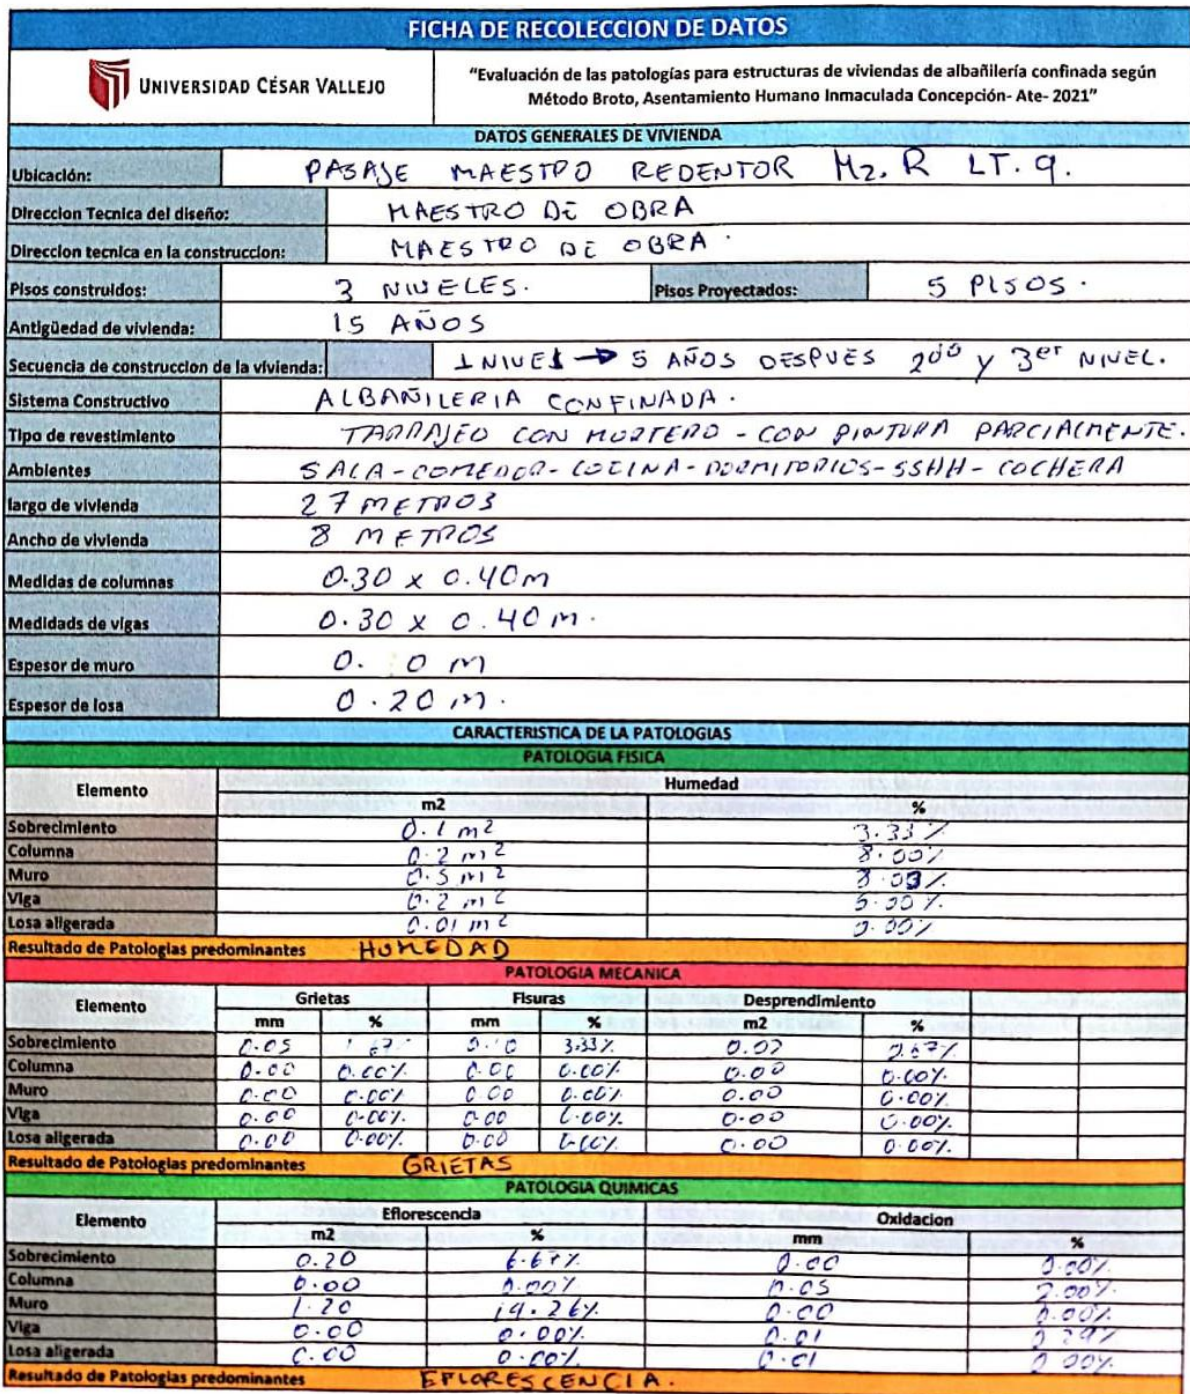 FICHA DE RECOLECCION DE DATOS
UNIVERSIDAD CÉSAR VALLEJO
"Evaluación de las patologías para estructuras de viviendas de albañilería confinada según
Método Broto, Asentamiento Humano Inmaculada Concepción- Ate- 2021"
DATOS GENERALES DE VIVIENDA
Ubicación: PASAJE MAESTRO REDENTOR Mz. R LT. 9.
Direccion Tecnica del diseño: MAESTRO DE OBRA
Direccion tecnica en la construccion: MAESTRO DE OBRA.
Pisos construidos: 3 NIVELES. Pisos Proyectados: 5 PISOS.
Antigüedad de vivienda: 15 AÑOS
Secuencia de construccion de la vivienda: 1 NIVEL → 5 AÑOS DESPUES 2do y 3er NIVEL.
Sistema Constructivo ALBAÑILERIA CONFINADA.
Tipo de revestimiento TARRAJEO CON MORTERO - CON PINTURA PARCIALMENTE.
Ambientes SALA-COMEDOR-COCINA-DORMITORIOS-SSHH-COCHERA
largo de vivienda 27 METROS
Ancho de vivienda 8 METROS
Medidas de columnas 0.30 x 0.40m
Medidads de vigas 0.30 x 0.40 m.
Espesor de muro 0. 0 m
Espesor de losa 0.20 m.
CARACTERISTICA DE LA PATOLOGIAS
PATOLOGIA FISICA
Elemento Humedad
m2 %
Sobrecimiento 0.1 m2 3.33%
Columna 0.2 m2 8.00%
Muro 0.5 m2
Viga 0.2 m2
Losa aligerada 0.01 m2 0.00%
Resultado de Patologias predominantes HUMEDAD
PATOLOGIA MECANICA
Elemento Grietas Fisuras Desprendimiento
mm % mm % m2 %
Sobrecimiento 0.05 1.67% 0.10 3.33% 0.02 0.67%
Columna 0.00 0.00% 0.00 0.00% 0.00 0.00%
Muro 0.00 0.00% 0.00 0.00% 0.00 0.00%
Viga 0.00 0.00% 0.00 0.00% 0.00 0.00%
Losa aligerada 0.00 0.00% 0.00 0.00% 0.00 0.00%
Resultado de Patologias predominantes GRIETAS
PATOLOGIA QUIMICAS
Elemento Eflorescencia Oxidacion
m2 % mm %
Sobrecimiento 0.20 6.67% 0.00 0.00%
Columna 0.00 0.00% 0.05 2.00%
Muro 1.20 19.26% 0.00 0.00%
Viga 0.00 0.00% 0.01
Losa aligerada 0.00 0.00% 0.01 0.00%
Resultado de Patologias predominantes EFLORESCENCIA.